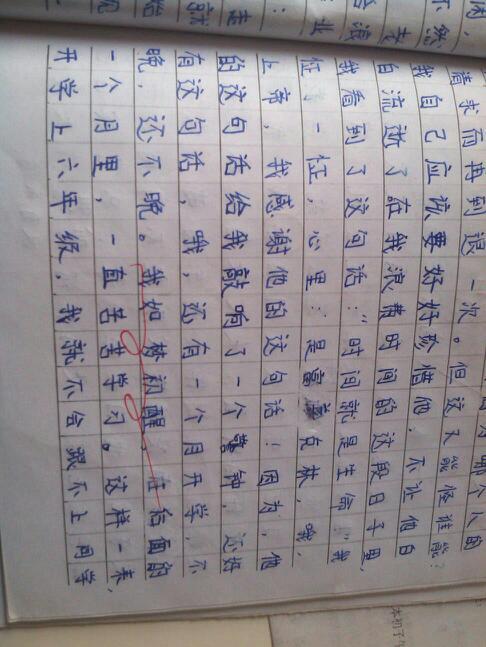 个人的
着求而再到退一次。但这又能怪谁能?
我自己应该要好好珍惜他,不让他白
自流逝了在我浪费时间的这段日子里,
我看到了这句话:“时间就是生命”我
怔了一怔,心里:是富兰克林,哦,
上帝,我感谢他的这句话!因为,他
的这句话给我敲响了一个警钟,还好
有这句话,哦,还有一个月开学,不
晚,还不晚。我如梦初醒,在后面的
一个月里,一直苦苦学习。这样一来,
开学上六年级,我就不会跟不上同学